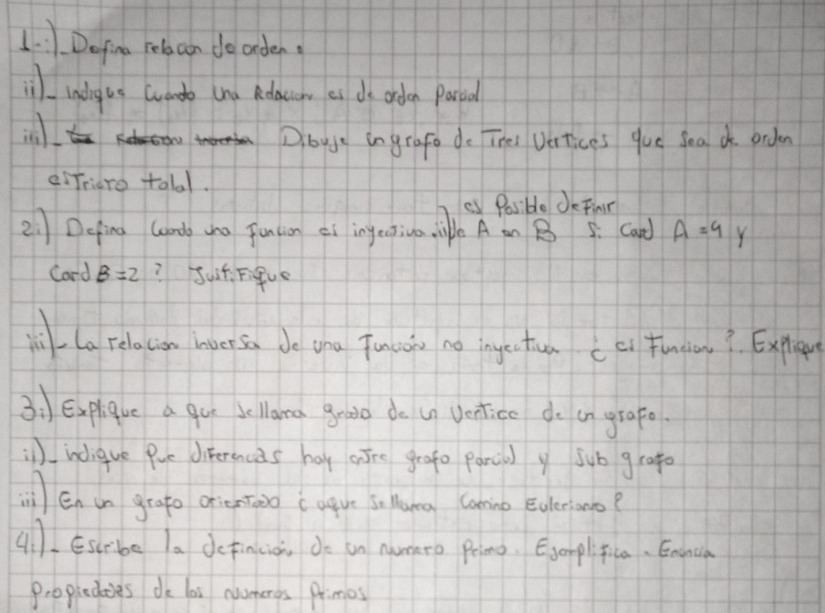 1-i)_ Defina relacion de orden.
ii)_ indique Cuando Una Relacion es de orden Parcial
iii)_ Dibuje un grafo de Tres Vertices que sea de orden
esTricto total.
es Posible definir
2i) Defina Cuando una funcion es inyectiva. ii) de A en B Si Card A = 4 y
Card B = 2 ? Justifique
iii)- La relacion inversa de una Función no inyectiva ¿ es Funcion ?. Explique
3i) Explique a que se llama grado de un Vertice de un grafo.
ii)_ indique que diferencias hay entre grafo parcial y sub grafo
iii) En un grafo orientado ¿ aque se llama Camino Euleriano ?
4i)- Escriba la definición de un numero primo. Ejemplifica - Enuncia
propiedades de los numeros Primos